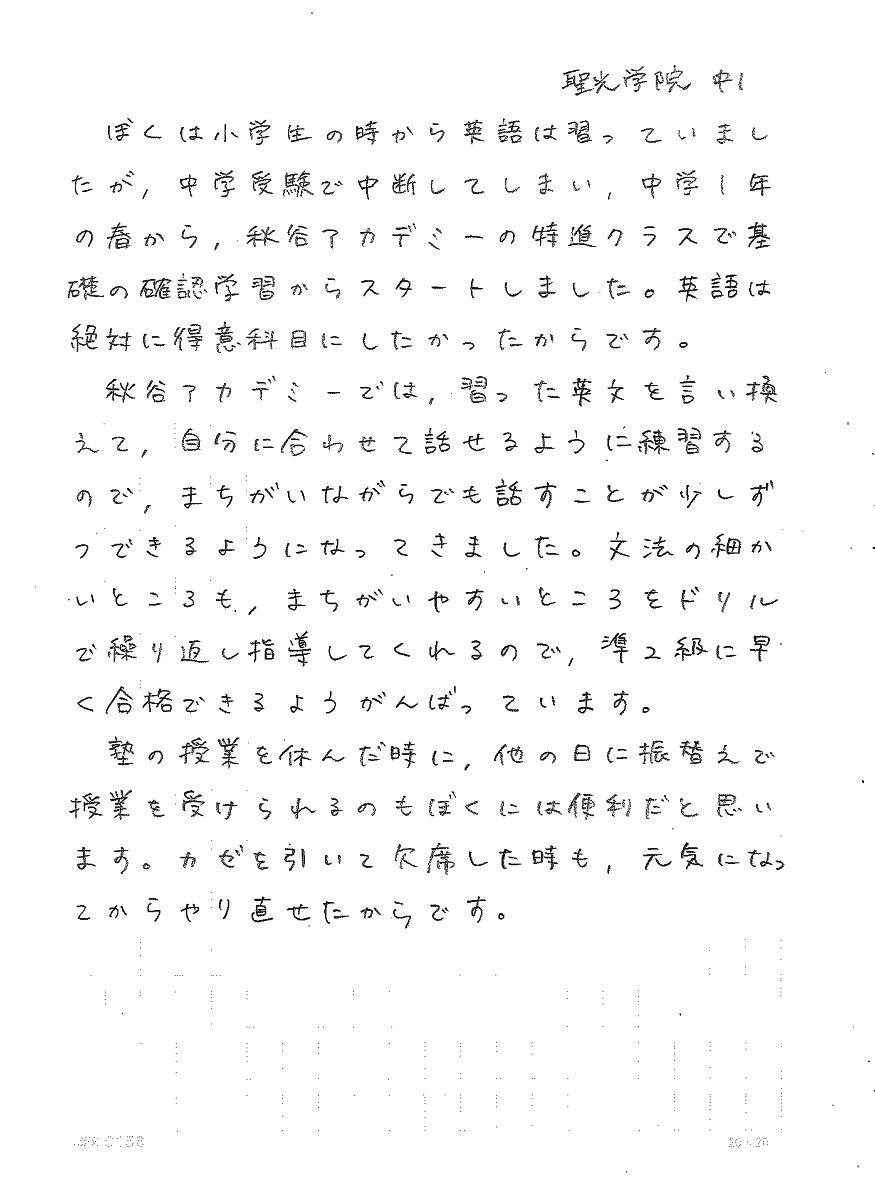 聖光学院 中1
ぼくは小学生の時から英語は習っていまし
たが,中学受験で中断してしまい,中学1年
の春から,秋谷アカデミーの特進クラスで基
礎の確認学習からスタートしました。英語は
絶対に得意科目にしたかったからです。
秋谷アカデミーでは,習った英文を言い換
えて,自分に合わせて話せるように練習する
ので,まちがいながらでも話すことが少しず
つできるようになってきました。文法の細か
いところも,まちがいやすいところをドリル
で繰り返し指導してくれるので,準2級に早
く合格できるようがんばっています。
塾の授業を休んだ時に,他の日に振替えで
授業を受けられるのもぼくには便利だと思い
ます。カゼを引いて欠席した時も,元気になっ
てからやり直せたからです。
20×20